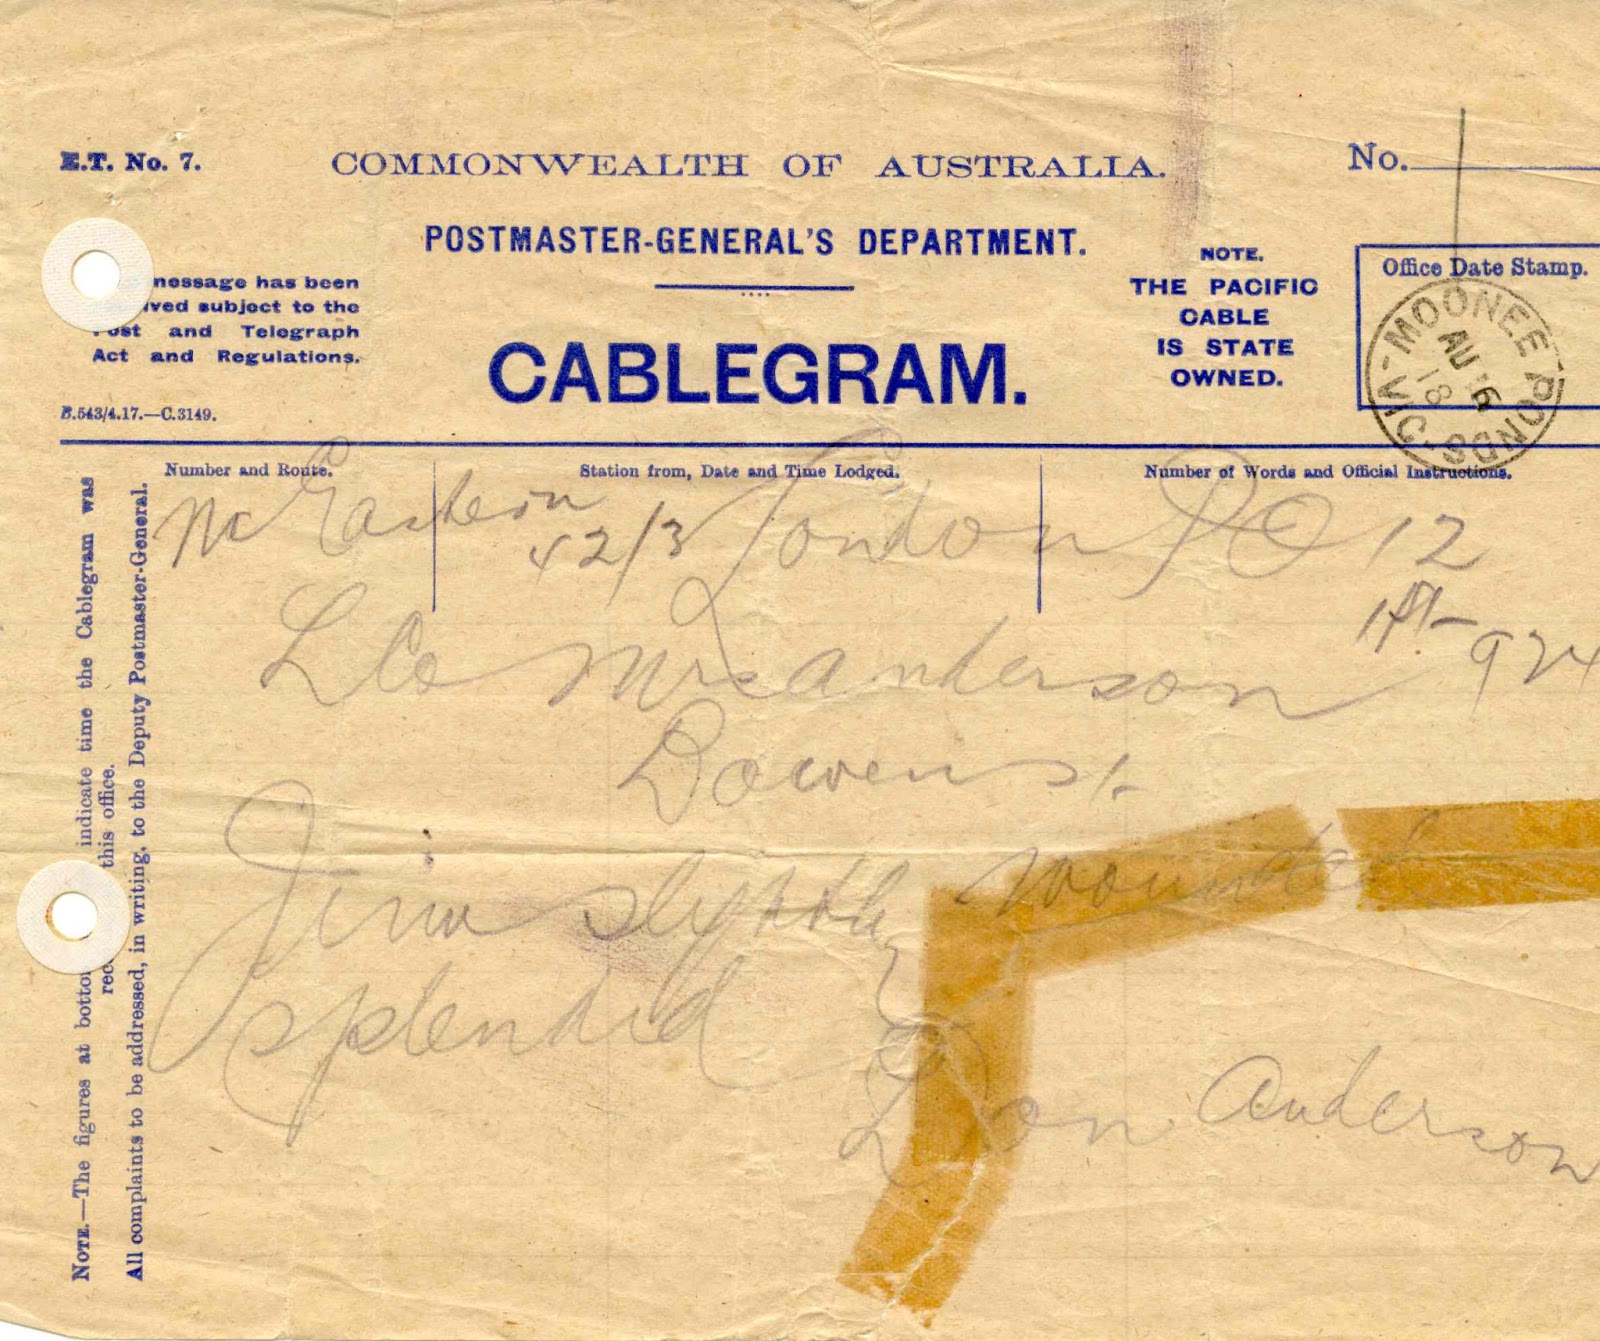 E.T. No. 7.
COMMONWEALTH OF AUSTRALIA.
No.
POSTMASTER-GENERAL'S DEPARTMENT.
message has been
ived subject to the
Post and Telegraph
Act and Regulations.
CABLEGRAM.
NOTE.
THE PACIFIC
CABLE
IS STATE
OWNED.
Office Date Stamp.
MOONEE PONDS VIC
AU 16
18
B.543/4.17.—C.3149.
Number and Route.
Station from, Date and Time Lodged.
Number of Words and Official Instructions.
Eastern 42/3 London 12
LCo Mrs Anderson 924
Bowen St
Jim slightly wounded
splendid
Don Anderson
NOTE.—The figures at bottom indicate time the Cablegram was
rec this office.
All complaints to be addressed, in writing, to the Deputy Postmaster-General.